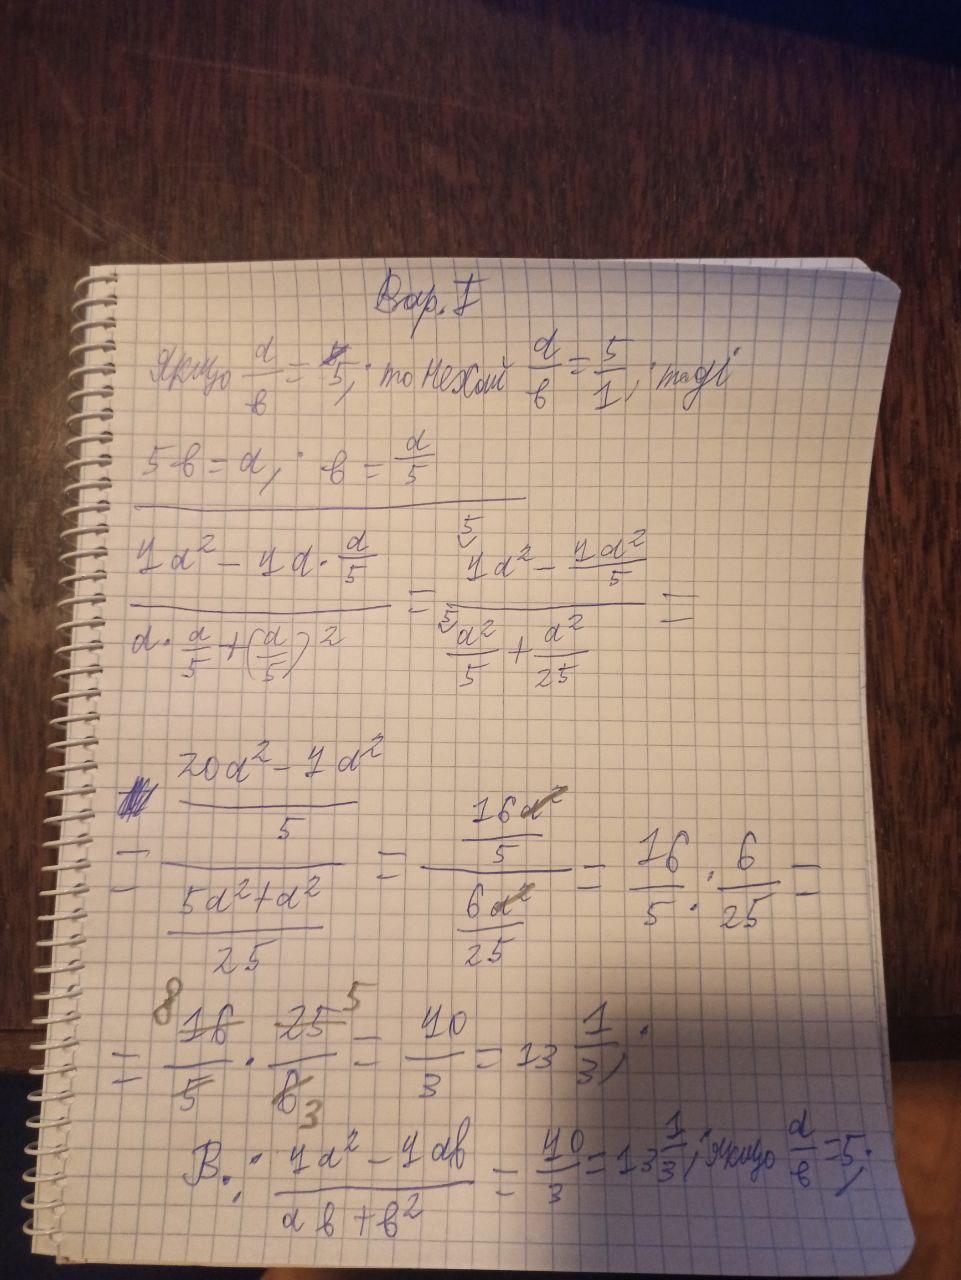 Вар. I
Якщо a/в = 5; то нехай a/в = 5/1; тоді
5в = a; в = a/5
(4a² - 4a · a/5) / (a · a/5 + (a/5)²) = (4a² - 4a²/5) / (a²/5 + a²/25) =
= ((20a² - 4a²)/5) / ((5a² + a²)/25) = (16a²/5) / (6a²/25) = 16/5 : 6/25 =
= 16/5 · 25/6 = 40/3 = 13 1/3;
В.: (4a² - 4aв) / (aв + в²) = 40/3 = 13 1/3; якщо a/в = 5;